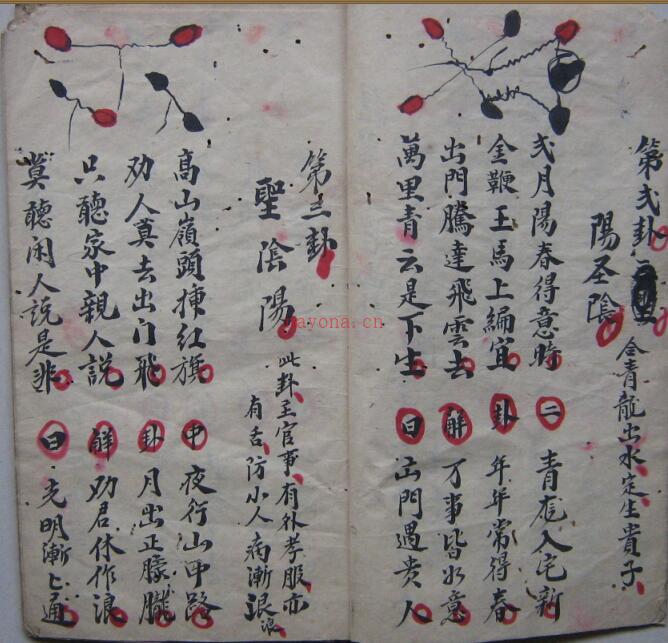 第弍卦
陽圣陰
合青龍出水定生貴子
弍月陽春得意時
金鞭玉馬上編宜
出門騰達飛雲去
萬里青云是下生
二 青龙入宅新
卦 年年常得春
解 万事皆如意
曰 出門遇贵人
第三卦
聖陰陽
此卦主官事有外孝服亦
有舌防小人病漸退
高山嶺頭揀红旗
劝人莫去出门飛
只聽家中親人説
莫聽闲人説是非
中 夜行山中路
卦 月出正朦朧
解 劝君休作浪
曰 光明漸匕通
ayona.cn